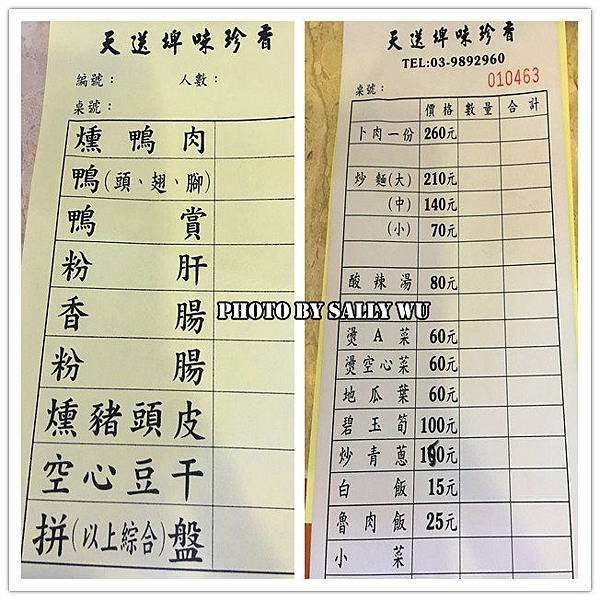 天送埤味珍香
編號： 人數：
桌號：
燻鴨肉
鴨(頭、翅、腳)
鴨賞
粉肝
香腸
粉腸
燻豬頭皮
空心豆干
拼(以上綜合)盤
天送埤味珍香
TEL:03-9892960
010463
桌號：
價格 數量 合計
卜肉一份 260元
炒麵(大) 210元
(中) 140元
(小) 70元
酸辣湯 80元
燙A菜 60元
燙空心菜 60元
地瓜葉 60元
碧玉筍 100元
炒青蔥 150元
白飯 15元
魯肉飯 25元
小菜
PHOTO BY SALLY WU